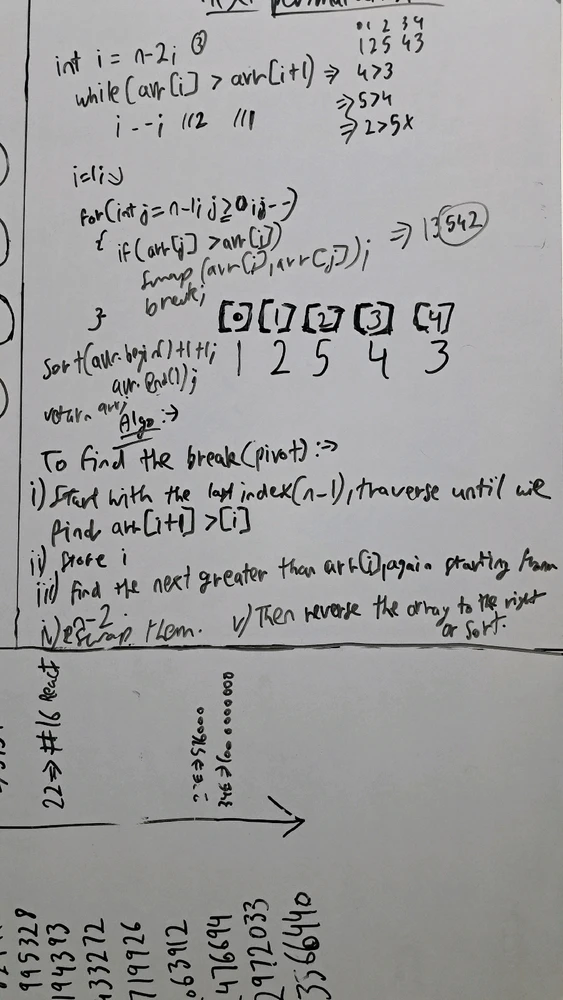 int i = n-2; ③
0 1 2 3 4
1 2 5 4 3
while(arr[i] > arr[i+1) ⇒ 4>3
i--; //2 //1
⇒ 5>4
⇒ 2>5x
for(int j = n-1; j ≥ 0; j--)
{ if(arr[j] > arr[i])
swap(arr[i], arr[j]); ⇒ 13542
break;
}
[0] [1] [2] [3] [4]
1 2 5 4 3
sort(arr.begin()+1+1;
arr.end());
return arr;
Algo :→
To find the break(pivot) :⇒
i) Start with the last index(n-1), traverse until we
find arr[i+1] > [i]
ii) Store i
iii) find the next greater than arr[i], again starting from
n-2
iv) swap them. v) Then reverse the array to the right
or sort.
22 ⇒ #16 React
995328
194393
719926
63912
476694
2972033
3566440